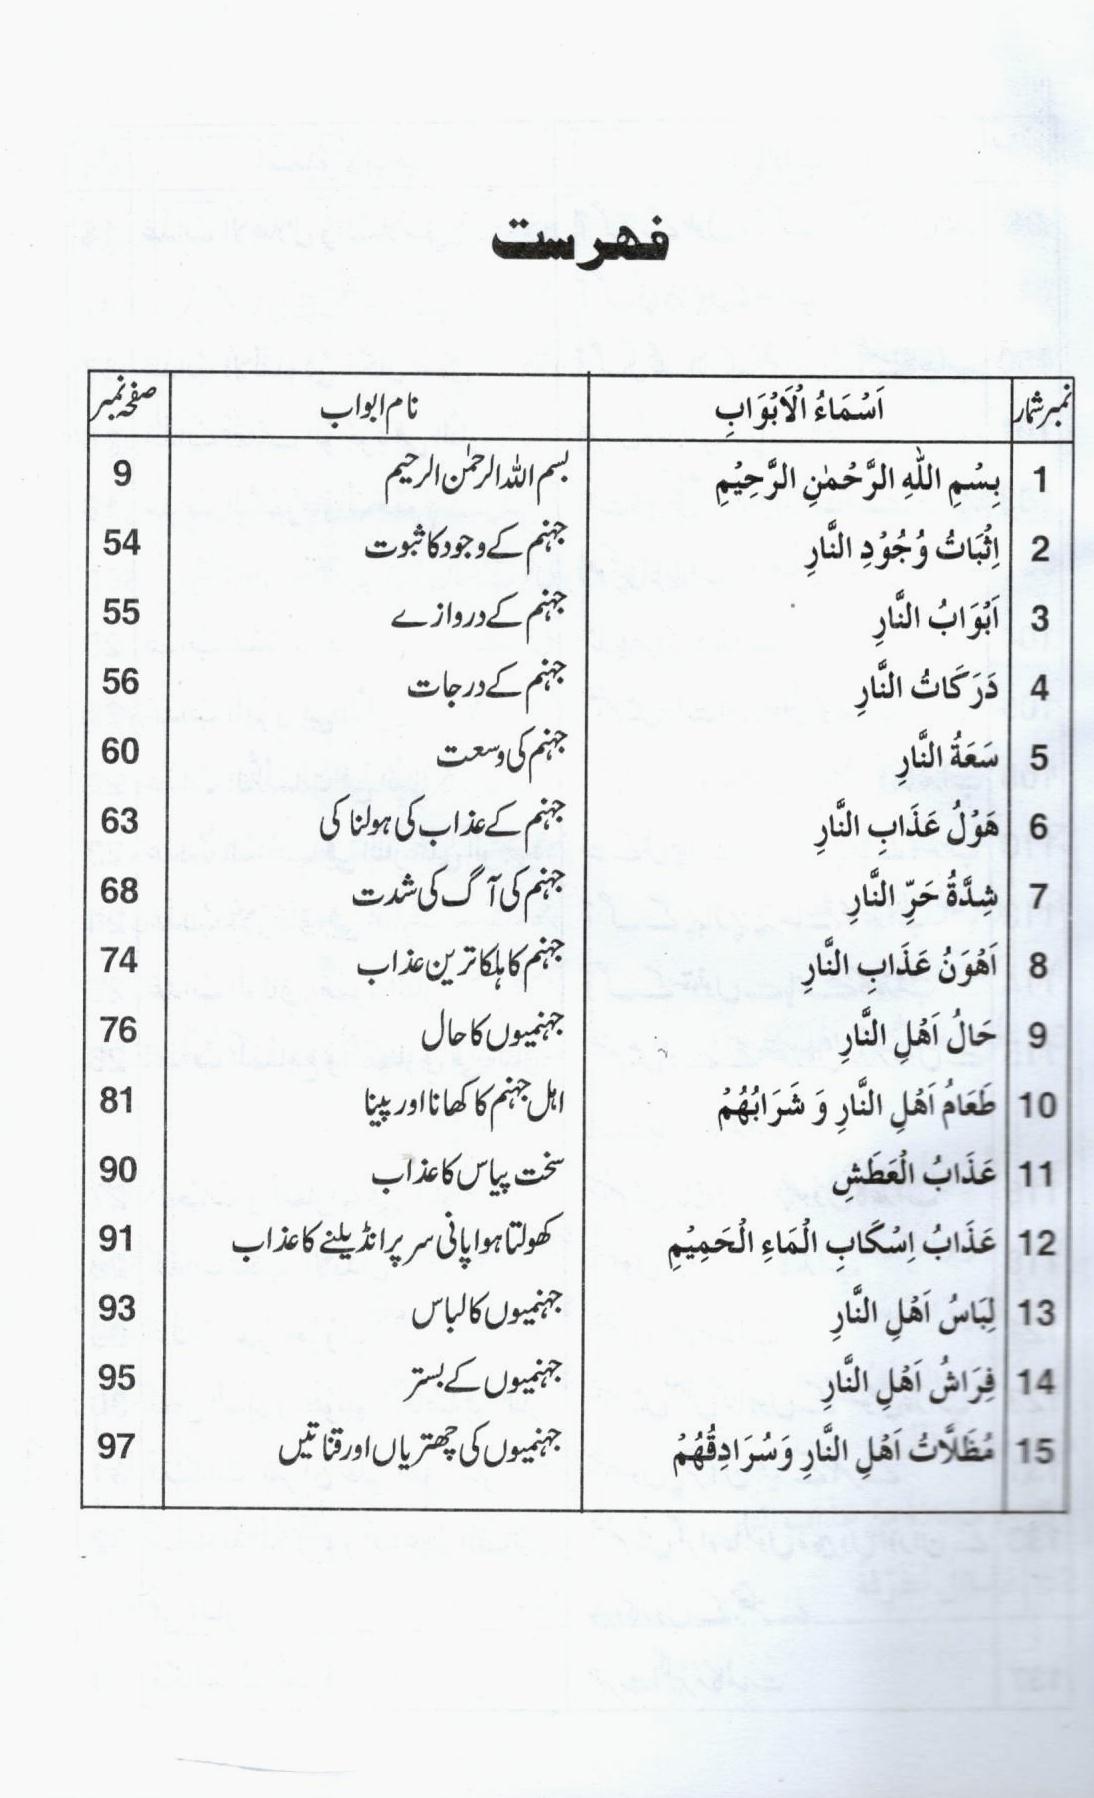 فہرست
نمبرشمار اَسْمَاءُ الْاَبْوَابِ نام ابواب صفحہ نمبر
1 بِسْمِ اللّٰهِ الرَّحْمٰنِ الرَّحِيْمِ بسم اللہ الرحمٰن الرحیم 9
2 اِثْبَاتُ وُجُوْدِ النَّارِ جہنم کے وجود کا ثبوت 54
3 اَبْوَابُ النَّارِ جہنم کے دروازے 55
4 دَرَكَاتُ النَّارِ جہنم کے درجات 56
5 سَعَةُ النَّارِ جہنم کی وسعت 60
6 هَوْلُ عَذَابِ النَّارِ جہنم کے عذاب کی ہولناکی 63
7 شِدَّةُ حَرِّ النَّارِ جہنم کی آگ کی شدت 68
8 اَهْوَنُ عَذَابِ النَّارِ جہنم کا ہلکا ترین عذاب 74
9 حَالُ اَهْلِ النَّارِ جہنمیوں کا حال 76
10 طَعَامُ اَهْلِ النَّارِ وَ شَرَابُهُمْ اہل جہنم کا کھانا اور پینا 81
11 عَذَابُ الْعَطَشِ سخت پیاس کا عذاب 90
12 عَذَابُ اِسْكَابِ الْمَاءِ الْحَمِيْمِ کھولتا ہوا پانی سر پر انڈیلنے کا عذاب 91
13 لِبَاسُ اَهْلِ النَّارِ جہنمیوں کا لباس 93
14 فِرَاشُ اَهْلِ النَّارِ جہنمیوں کے بستر 95
15 مُظَلَّاتُ اَهْلِ النَّارِ وَسُرَادِقُهُمْ جہنمیوں کی چھتریاں اور قناتیں 97